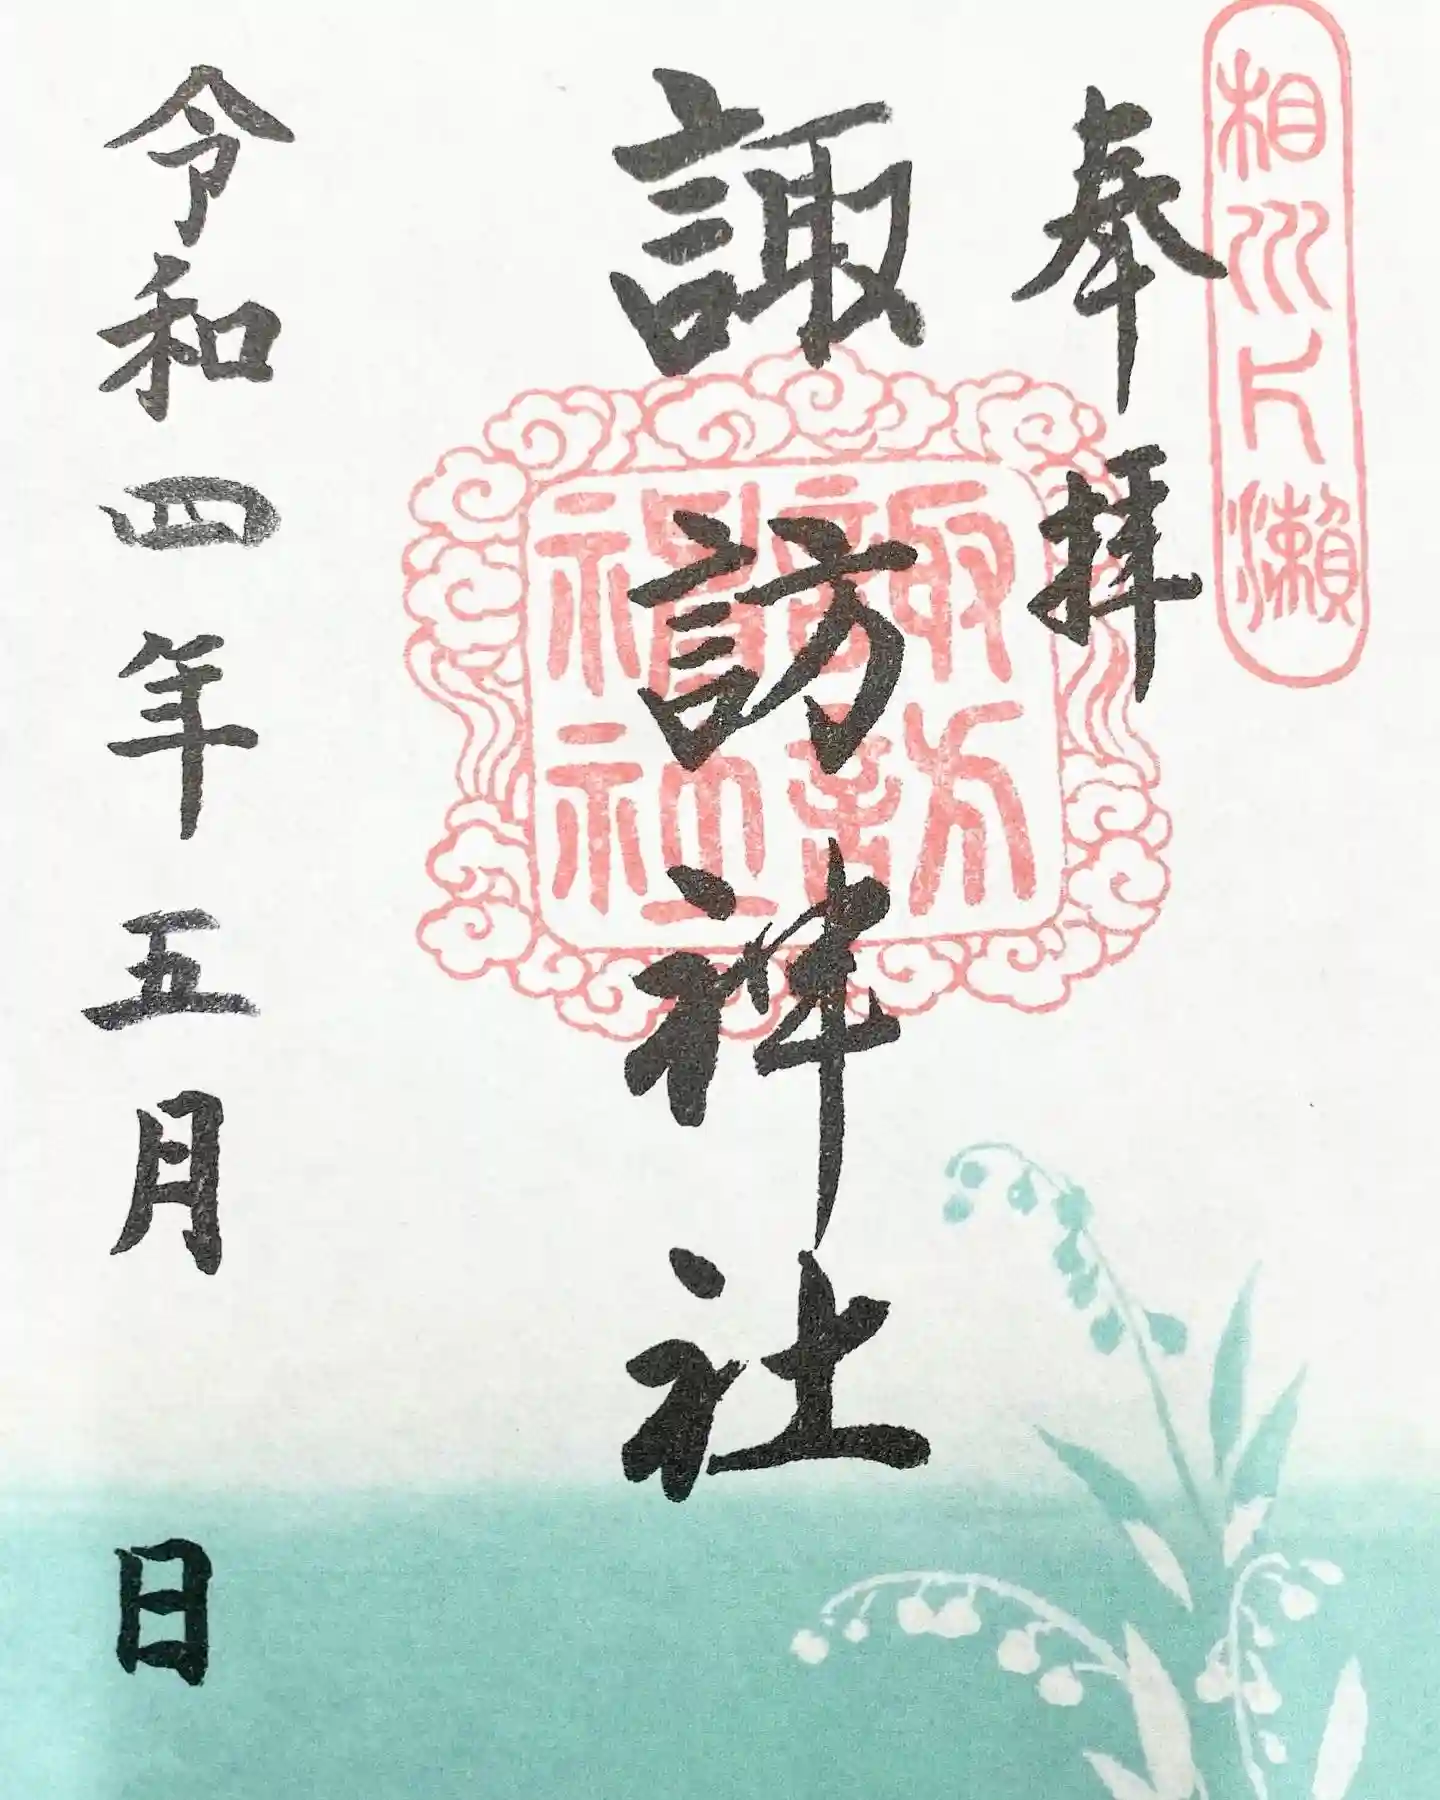 相州片瀬
奉拝
諏訪神社
諏訪神社
令和四年五月　日